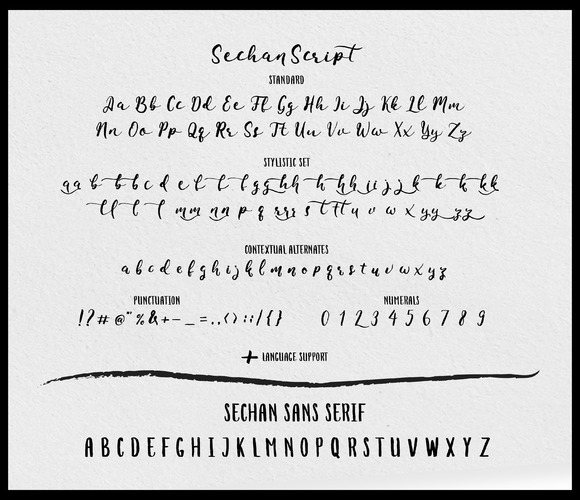 Sechan Script
STANDARD
Aa Bb Cc Dd Ee Ff Gg Hh Ii Jj Kk Ll Mm
Nn Oo Pp Qq Rr Ss Tt Uu Vv Ww Xx Yy Zz
STYLISTIC SET
CONTEXTUAL ALTERNATES
a b c d e f g h i j k l m n o p q r s t u v w x y z
PUNCTUATION
NUMERALS
0 1 2 3 4 5 6 7 8 9
+ LANGUAGE SUPPORT
SECHAN SANS SERIF
A B C D E F G H I J K L M N O P Q R S T U V W X Y Z